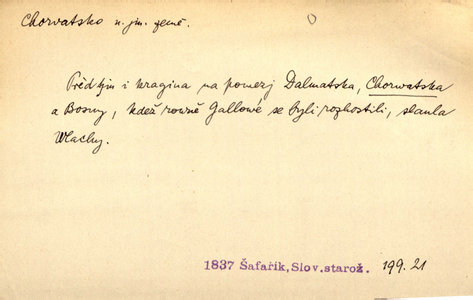 Chorvatsko n. jm. země.
Před tjm i kragina na pomezj Dalmatska, Chorwatska
a Bosny, kdež rowně Gallowé se byli rozhostili, slaula
Wlachy.
1837 Šafařík, Slov. starož. 199. 21